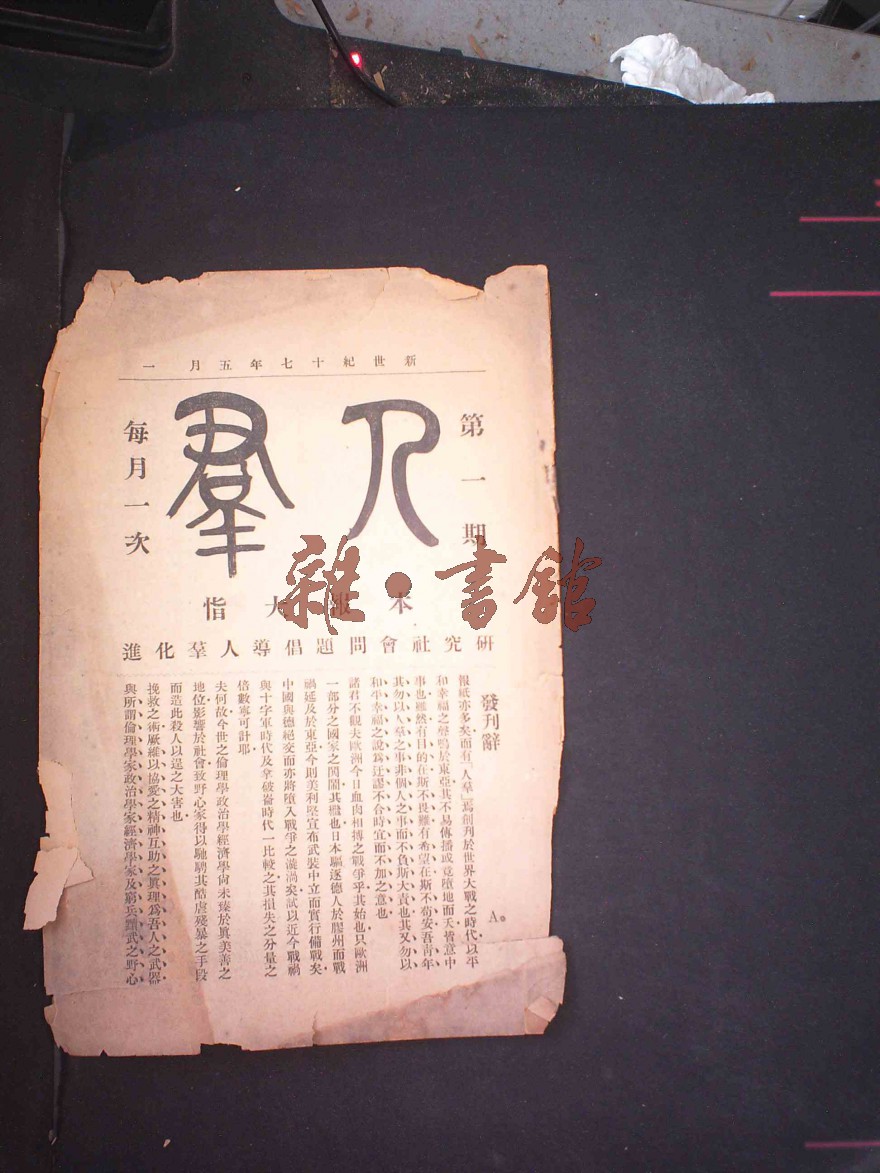 新世紀十七年五月一
第一期
人羣
每月一次
本報大恉
研究社會問題倡導人羣化進
發刊辭
A。
報紙亦多矣而有「人羣」焉創刊於世界大戰之時代以平
和幸福之聲鳴於東亞其不易傳播或竟墮地而夭皆意中
事也雖然有目的在斯不畏難有希望在斯不苟安吾靑年
其勿以人羣之事非個人之事而不負斯大責也其又勿以
和平幸福之說爲迂謬不合時宜而不加之意也
諸君不觀夫歐洲今日血肉相搏之戰爭乎其始也只歐洲
一部分之國家之鬩鬭其繼也日本驅逐德人於膠州而戰
禍延及於東亞今則美利堅宣布武裝中立而實行備戰矣
中國與德絕交而亦將墮入戰爭之漩渦矣試以近今戰禍
與十字軍時代及拿破崙時代一比較之其損失之分量之
倍數寧可計耶
夫何故今世之倫理學政治學經濟學尙未臻於眞美善之
地位影響於社會致野心家得以馳騁其酷虐殘暴之手段
而造此殺人以逞之大害也
挽救之術厥維以協愛之精神互助之眞理爲吾人之武器
與所謂倫理學家政治學家經濟學家及窮兵黷武之野心
雜·書館